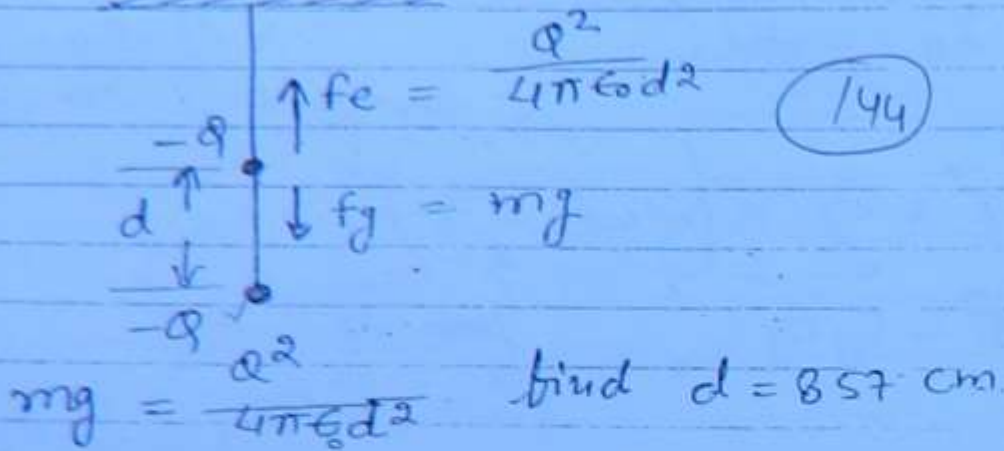 fe = Q²/4π∈₀d²
144
-Q
d
fg = mg
-Q
mg = Q²/4π∈₀d² find d = 857 cm